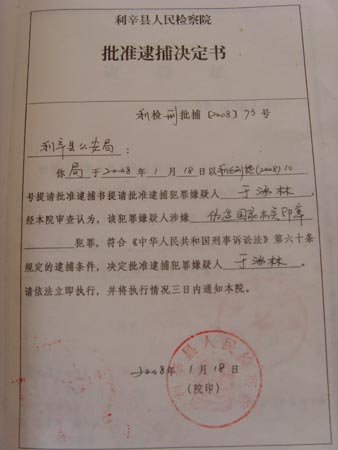 利辛县人民检察院
批准逮捕决定书
利检刑批捕〔2008〕73号
利辛县公安局：
你局于2008年1月18日以 (2008) 10
号提请批准逮捕书提请批准逮捕犯罪嫌疑人于 林
经本院审查认为，该犯罪嫌疑人涉嫌伪造国家机关印章
犯罪，符合《中华人民共和国刑事诉讼法》第六十条
规定的逮捕条件，决定批准逮捕犯罪嫌疑人于 林。
请依法立即执行，并将执行情况三日内通知本院。
2008年1月18日
（院印）
利辛县人民检察院